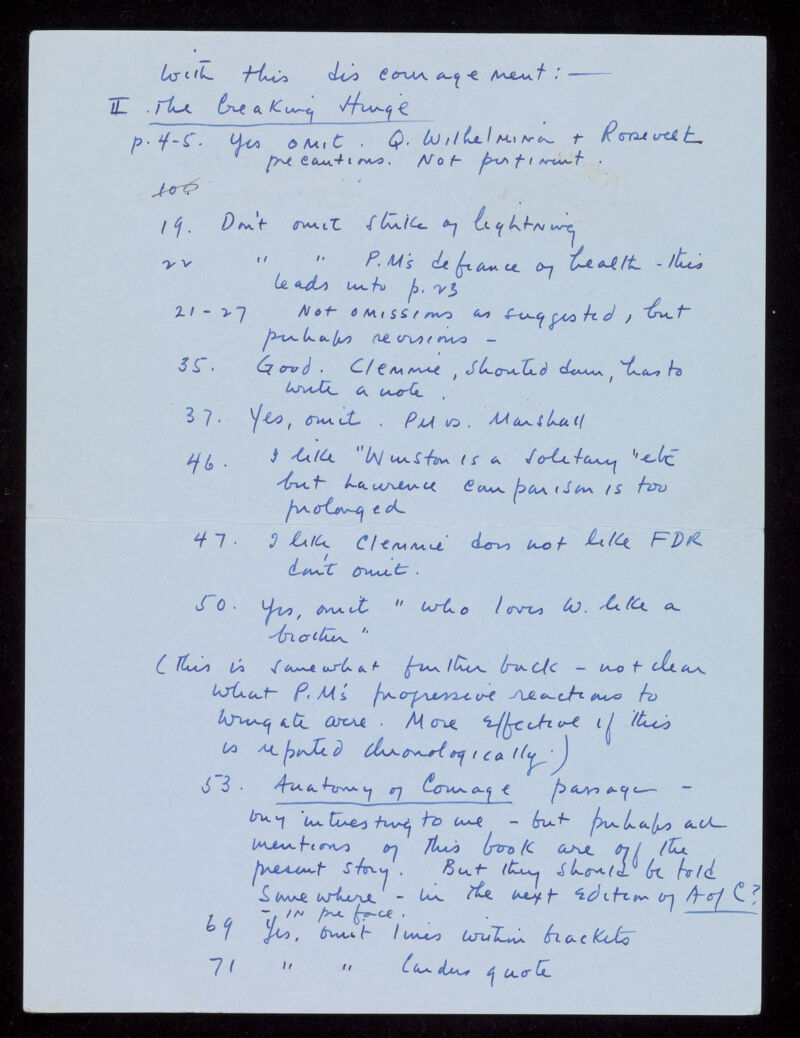 with this discouragement: —
II . The Breaking Hinge
p. 4-5. Yes omit. Q. Wilhelmina + Rosevelt
precautions. Not pertinent.
100
19. Don't omit strike of lightning
22 " " P.M's defiance of health - this
leads into p. 23
21-27 Not omissions as suggested, but
perhaps revisions -
35. Good. Clemmie, shouted down, has to
write a note.
37. Yes, omit. PM vs. Marshall
46. I like "Winston is a solitary" etc
but Lawrence comparison is too
prolonged
47. I like, Clemmie does not like FDR
don't omit.
50. Yes, omit "who loves W. like a
brother"
(This is somewhat further back - not clear
what P.M's progressive reactions to
Wingate were. More effective if this
is reported chronologically.)
53. Anatomy of Courage passage -
very interesting to me - but perhaps all
mentions of this book are off the
present story. But they should be told
somewhere - in the next edition of A of C?
- in preface.
69 Yes, omit lines within brackets
71 " " quote